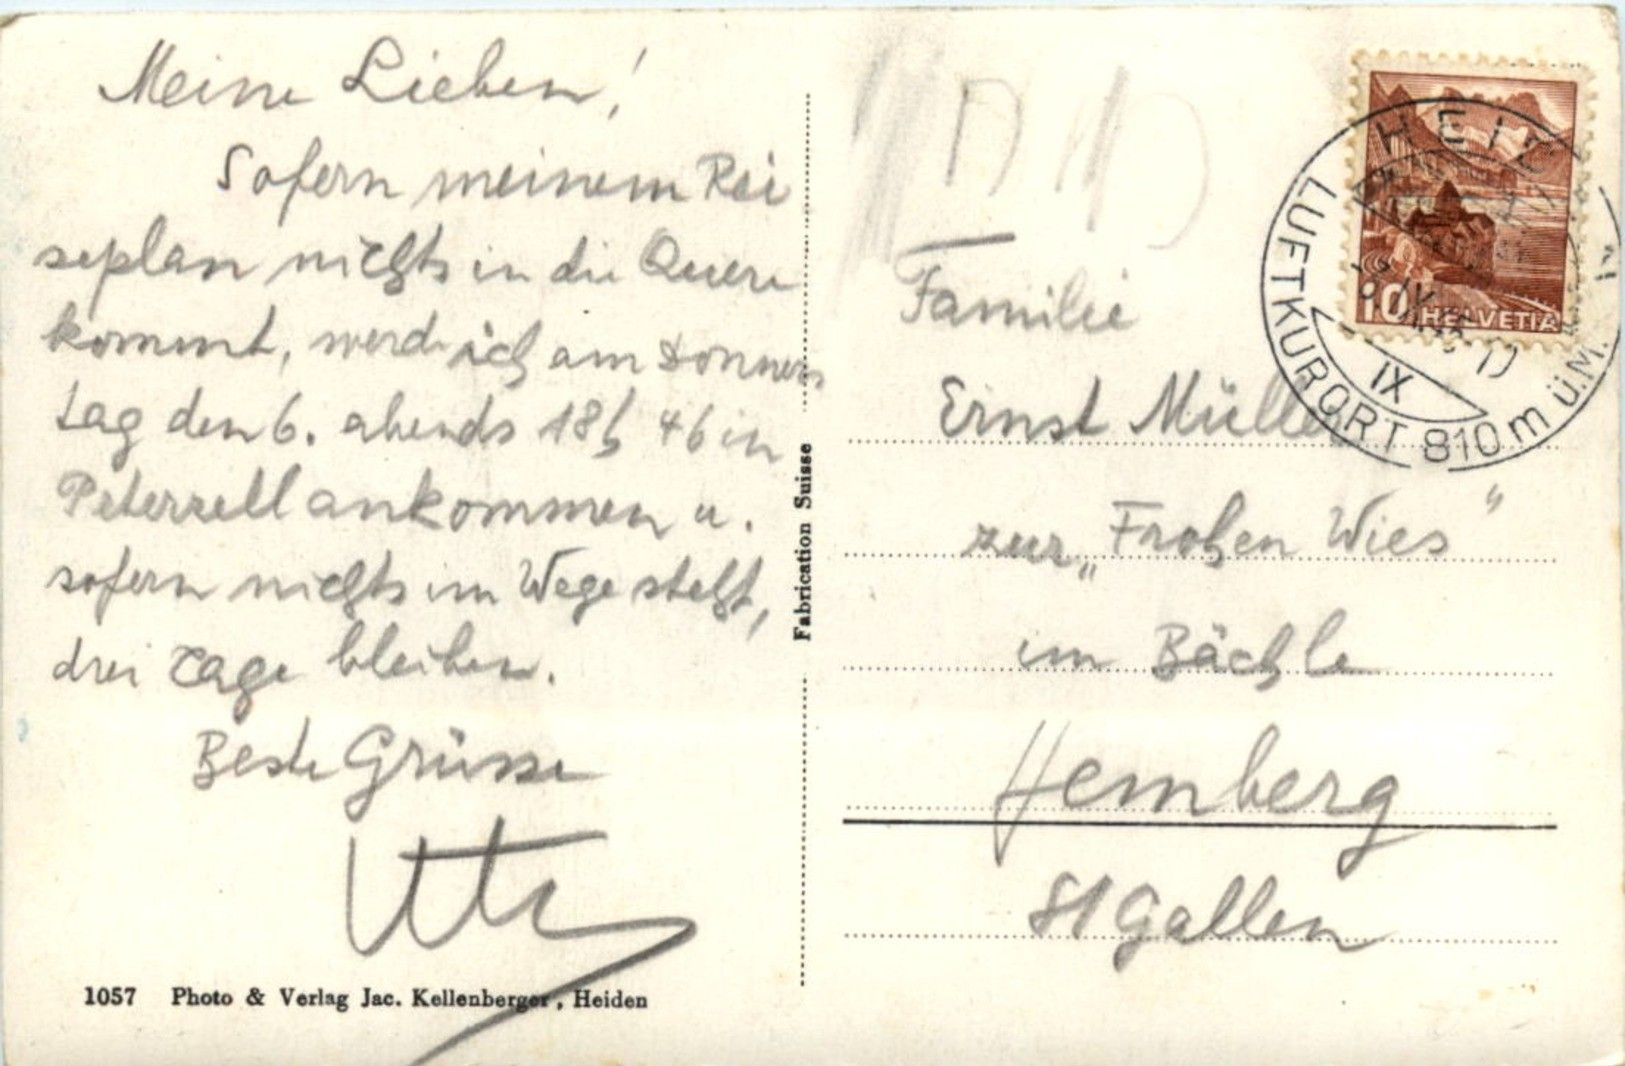 Meine Lieben!
Sofern meinem Rei
seplan nichts in die Quere
kommt, werde ich am Donners
tag den 6. abends 18h 46 in
Peterzell ankommen u.
sofern nichts im Wege steht,
drei Tage bleiben.
Beste Grüsse
1057 Photo & Verlag Jac. Kellenberger, Heiden
Fabrication Suisse
Familie
Ernst Müller
zur „Frohen Wies"
im Bächle
Hemberg
St Gallen
10 HELVETIA
HEID
IX
LUFTKURORT 810 m ü.M.